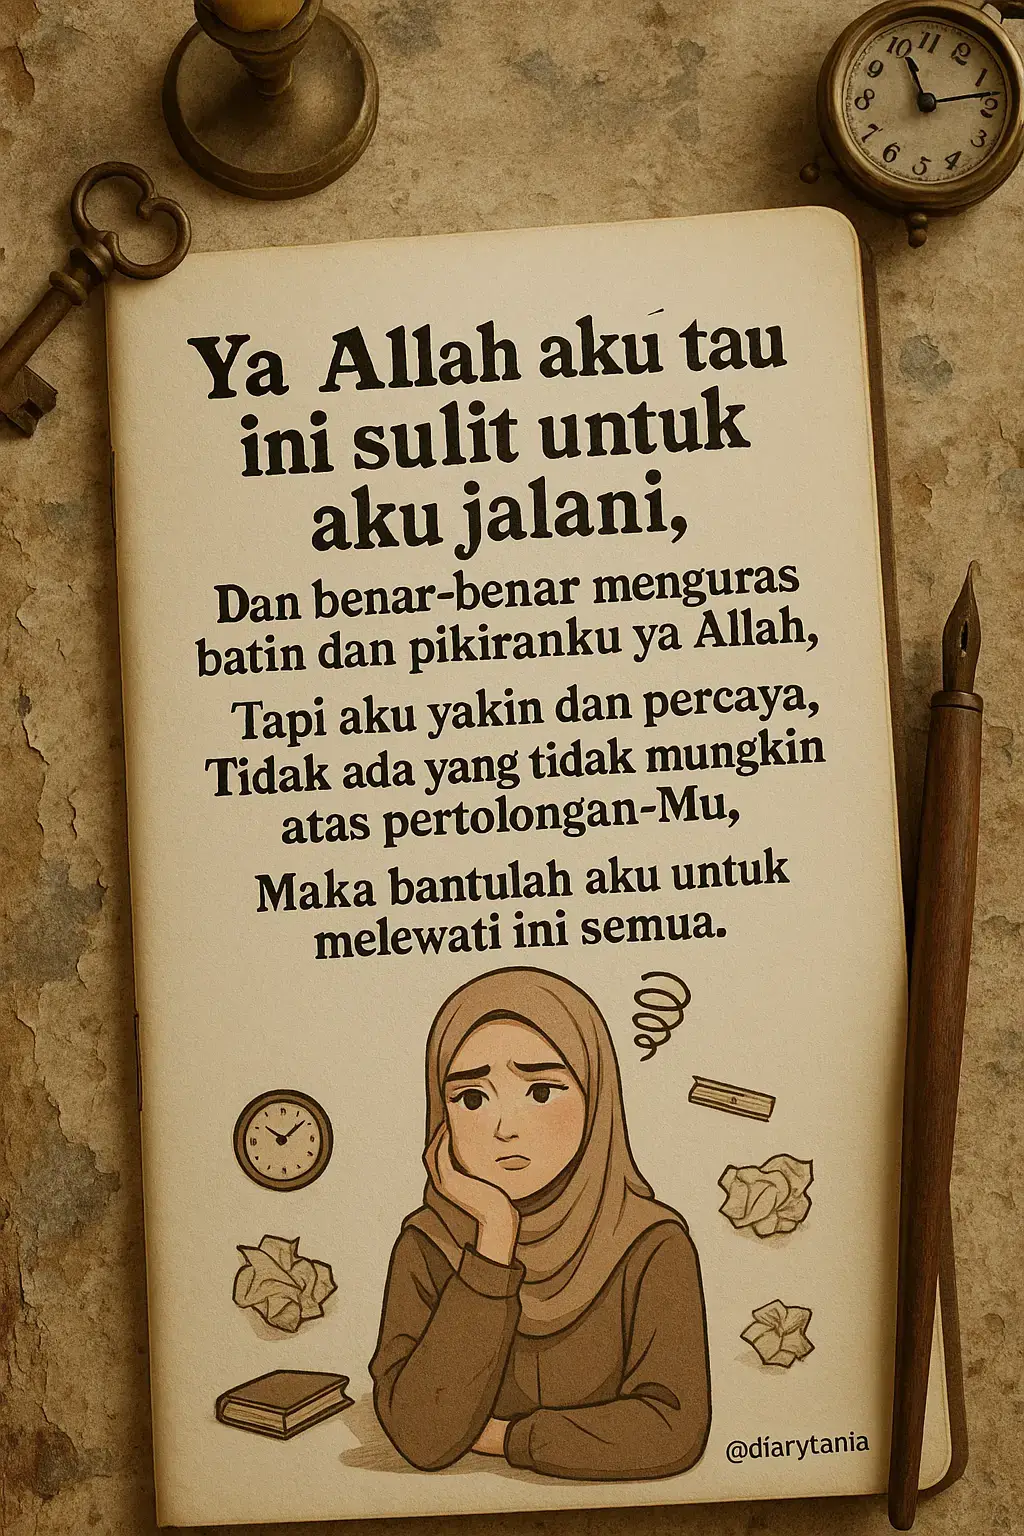 Ya Allah aku tau
ini sulit untuk
aku jalani,
Dan benar-benar menguras
batin dan pikiranku ya Allah,
Tapi aku yakin dan percaya,
Tidak ada yang tidak mungkin
atas pertolongan-Mu,
Maka bantulah aku untuk
melewati ini semua.
@díarytania